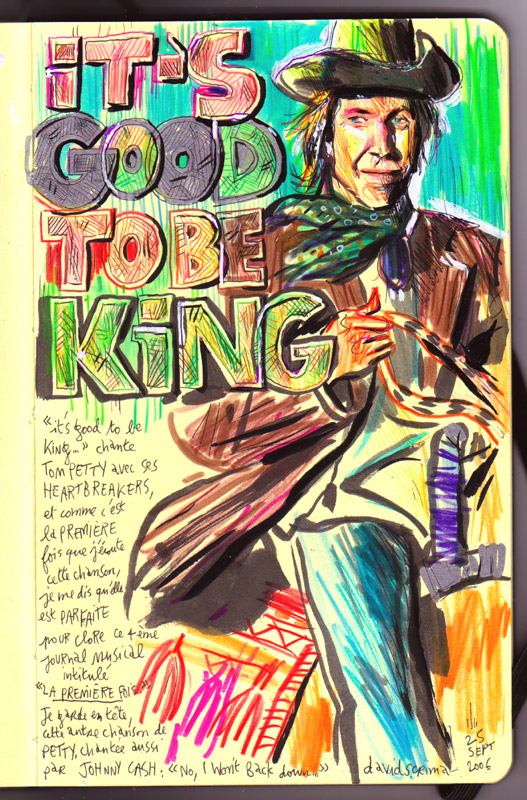 iT'S
GOOD
TO BE
KiNG
"it's good to be
King..." chante
TOM PETTY avec ses
HEARTBREAKERS,
et comme c'est
la PREMIÈRE
fois que j'écoute
cette chanson,
je me dis qu'elle
est PARFAITE
pour clore ce 4ème
journal musical
intitulé
"LA PREMIÈRE FOIS"
Je garde en tête,
cette autre chanson de
PETTY, chantée aussi
par JOHNNY CASH : "No, I Won't Back down..."
25
SEPT
2006